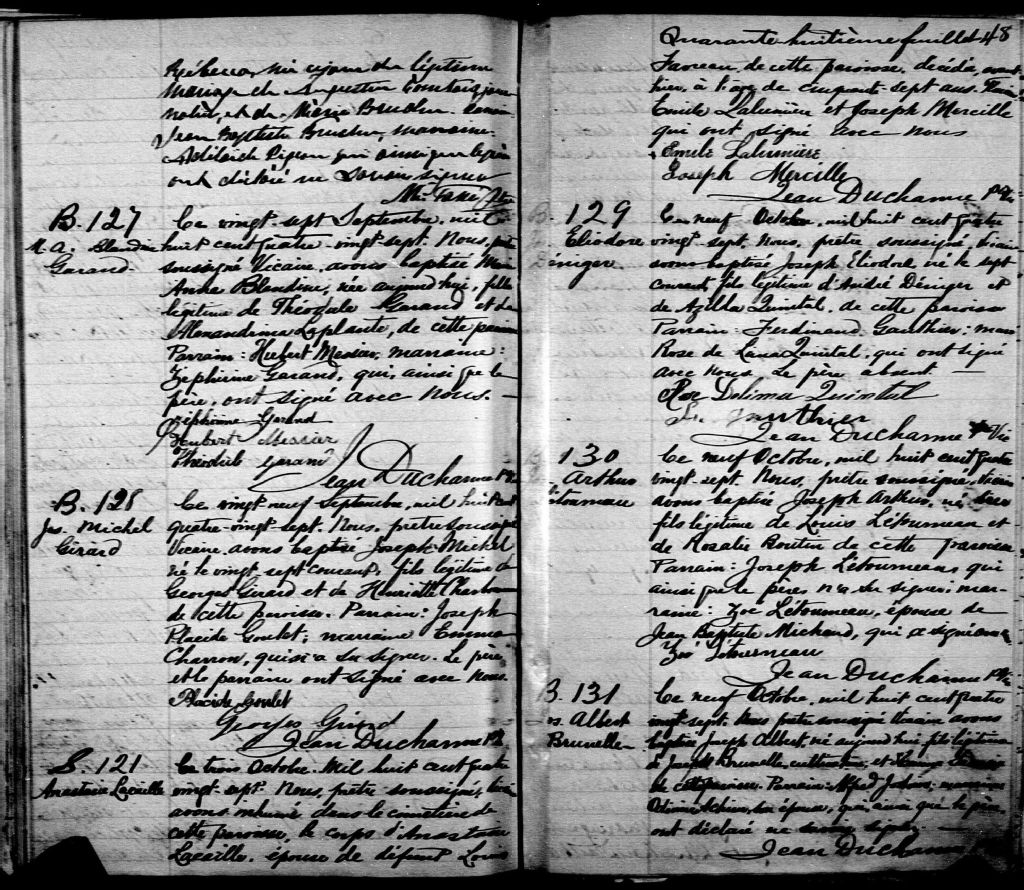 Rébecca, née ce jour du légitime
mariage de Augustin Comtois jour
nalier, et de Marie Bruslé.
Jean Baptiste marraine
Adélaïde Pigeon qui ainsi que le père
ont déclaré ne savoir signer
B. 127
M. A. Blandine
Garand.
Ce vingt-sept Septembre, mil
huit cent quatre-vingt-sept. Nous, prêtre
soussigné Vicaire, avons baptisé Marie
Anne Blandine, née aujourd'hui, fille
légitime de Théodule Garand et de
Alexandrina Laplante, de cette paroisse
Parrain: Hubert Messier, marraine:
Zéphirine Garand, qui, ainsi que le
père, ont signé avec Nous. —
Zéphirine Garand
Heubert Messier
Théodule Garand
Jean Ducharme Ptre
B. 128
Jos. Michel
Girard
Ce vingt neuf Septembre, mil huit cent
quatre-vingt-sept. Nous, prêtre soussigné
Vicaire, avons baptisé Joseph Michel
né le vingt-sept courant, fils légitime de
Georges Girard et de Henriette Charbonneau
de cette paroisse. Parrain: Joseph
Placide Goulet; marraine Emma
Charron, qui n'a su signer. Le père
et le parrain ont signé avec Nous.
Placide Goulet
Georges Girard
Jean Ducharme Ptre
S. 121
Anastasie Lacaille
Ce trois Octobre, Mil huit cent quatre
vingt-sept. Nous, prêtre soussigné,
avons inhumé dans le cimetière de
cette paroisse, le corps d'Anastasie
Lacaille, épouse de défunt Louis
Quarante-huitième feuillet 48
Favreau, de cette paroisse, décédée, avant
hier, à l'âge de cinquante-sept ans.
Emile Lalumière et Joseph Mercille
qui ont signé avec nous
Emile Lalumière
Joseph Mercille
Jean Ducharme Ptre Vic
B. 129
Eliodore
Déniger.
Ce neuf Octobre, mil huit cent quatre
vingt-sept. Nous, prêtre soussigné, Vicaire
avons baptisé Joseph Eliodore né le sept
courant, fils légitime d'André Déniger et
de Azilda Quintal, de cette paroisse
Parrain: Ferdinand Gauthier: marr
Rose de Lima Quintal, qui ont signé
avec Nous. Le père absent —
Rose Delima Quintal
Gauthier
Jean Ducharme Ptre Vic
130
Arthur
Létourneau
Ce neuf Octobre, mil huit cent quatre
vingt-sept. Nous, prêtre soussigné, Vicaire
avons baptisé Joseph Arthur, né
fils légitime de Louis Létourneau et
de Rosalie Boutin de cette paroisse
Parrain: Joseph Létourneau qui
ainsi que le père n'a su signer; mar-
raine: Zoé Létourneau, épouse de
Jean Baptiste Michaud, qui a signé avec
Zoé Létourneau
Jean Ducharme Ptre
B. 131
Jos Albert
Brunelle
Ce neuf Octobre, mil huit cent quatre
vingt-sept. Nous prêtre soussigné Vicaire avons
baptisé Joseph Albert, né aujourd'hui, fils légitime
de Joseph Brunelle, cultivateur, et
de cette paroisse. Parrain: Alfred
son épouse, qui, ainsi que le père,
ont déclaré ne savoir signer. —
Jean Ducharme